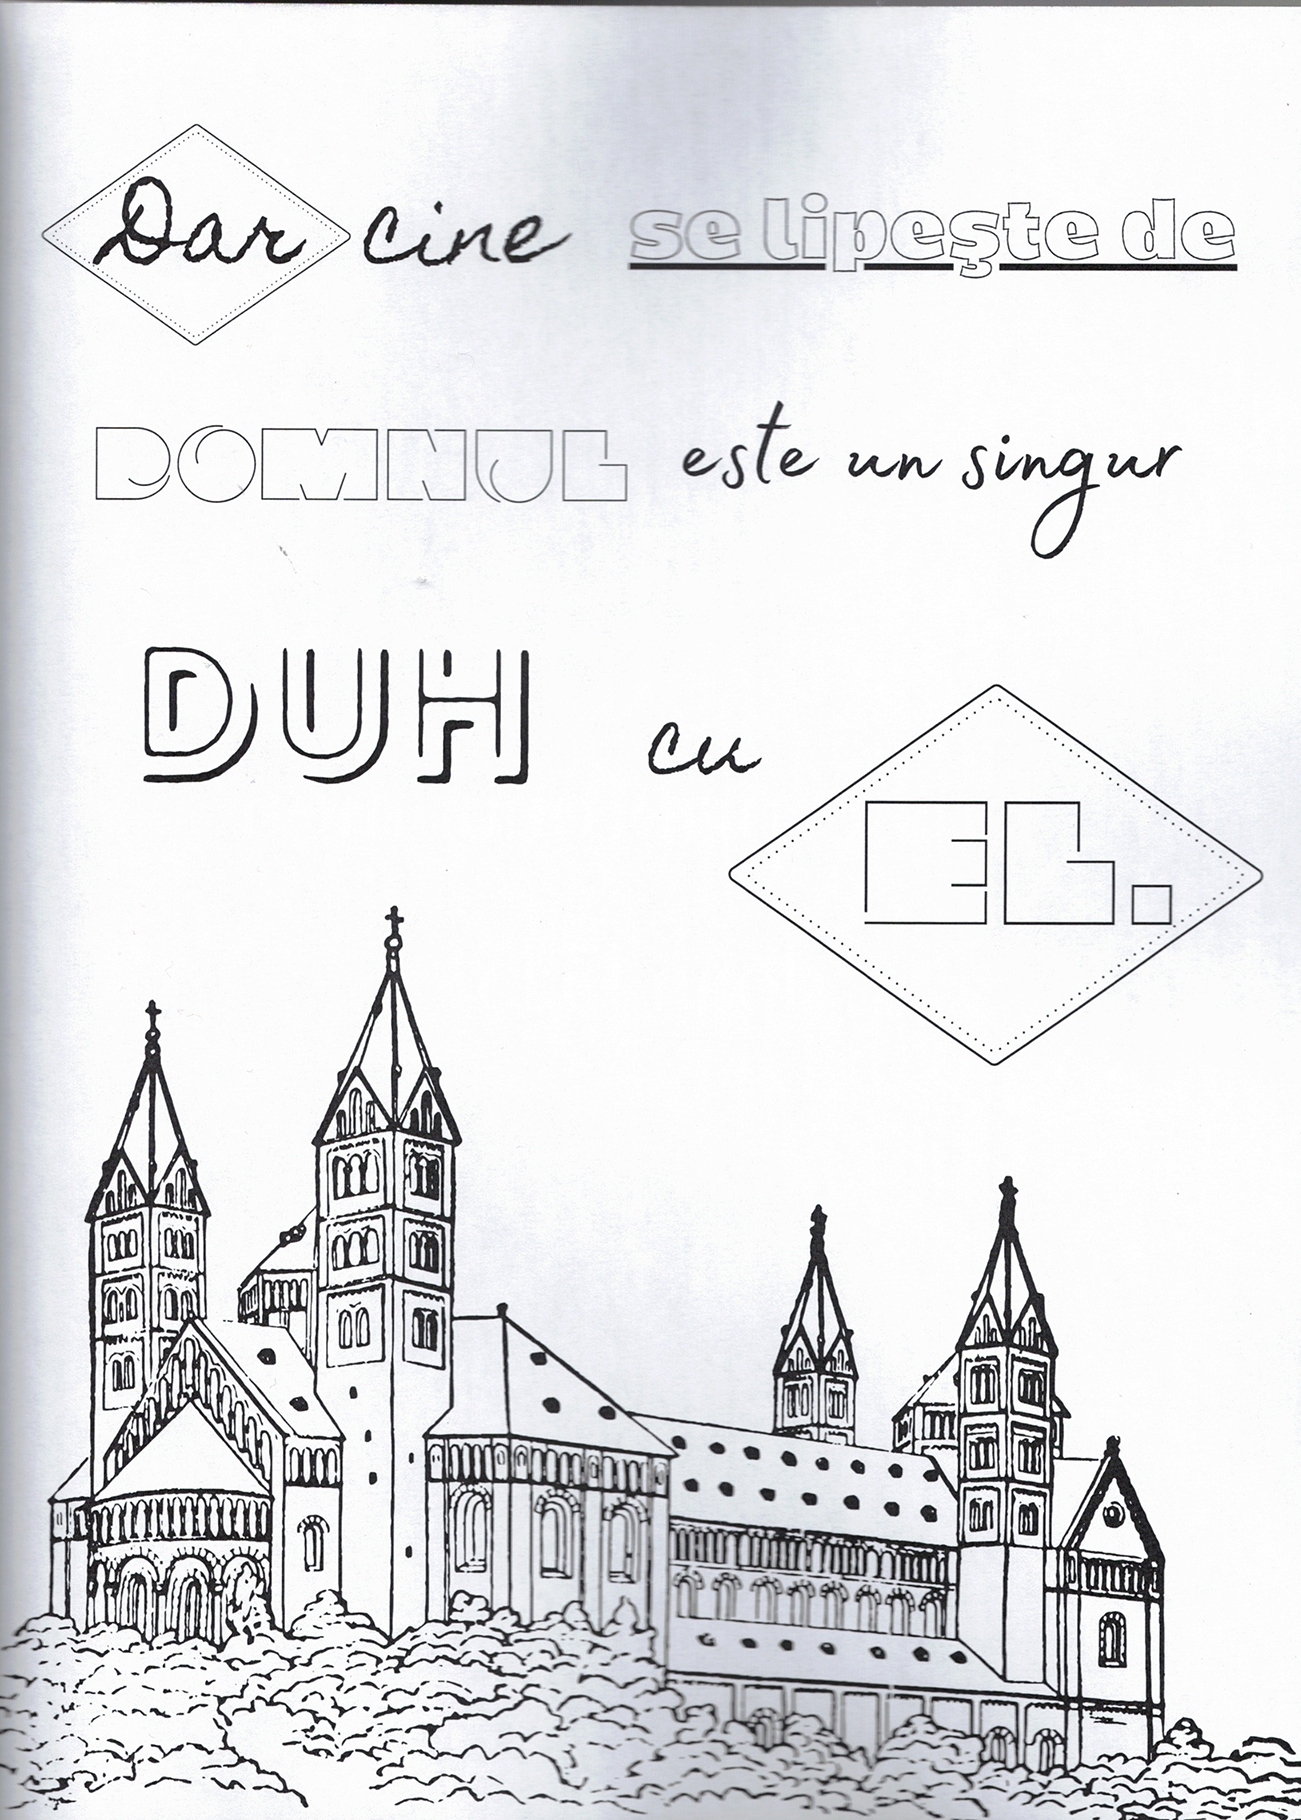 Dar cine se lipeşte de
DOMNUL este un singur
DUH cu
EL.